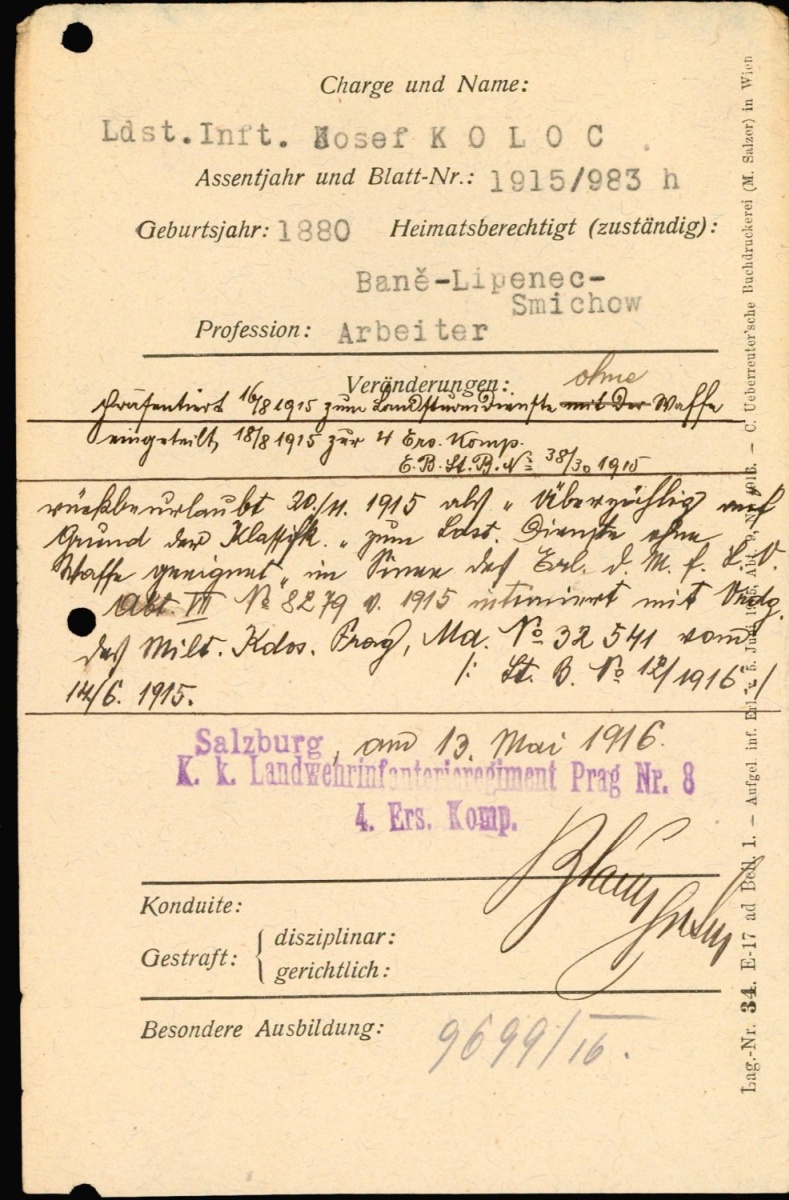 Charge und Name:
Ldst.Inft. Josef K O L O C .
Assentjahr und Blatt-Nr.: 1915/983 h
Geburtsjahr: 1880 Heimatsberechtigt (zuständig):
Baně-Lipenec-
Smichow
Profession: Arbeiter
Veränderungen: ohne
Präsentiert 16/8 1915 zum Landsturmdienste mit der Waffe
eingeteilt, 18/8 1915 zur 4 Ers. Komp.
E. B. St. B. No 38/30 1915
rückbeurlaubt 20./11. 1915 als „Überzählig auf
Grund der Klassifk. „zum Ldst. Dienste ohne
Waffe geeignet" im Sinne des Erl. d. M. f. L. V.
Abt. VII No 8279 v. 1915 intimiert mit Vrdg.
des Milt. Kdos. Prag, Ma. No 32541 vom
14/6. 1915. /: St. B. No 12/1916 :/
Salzburg, am 13. Mai 1916.
K. k. Landwehrinfanterieregiment Prag Nr. 8
4. Ers. Komp.
Konduite:
Gestraft: disziplinar:
gerichtlich:
Besondere Ausbildung: 9699/16.
Lag.-Nr. 34. E-17 ad Beil. 1. — Aufgel. inf. Erl. v. 5. Juni 1915, Abt. 9, Nr. 1916. — C. Ueberreuter'sche Buchdruckerei (M. Salzer) in Wien